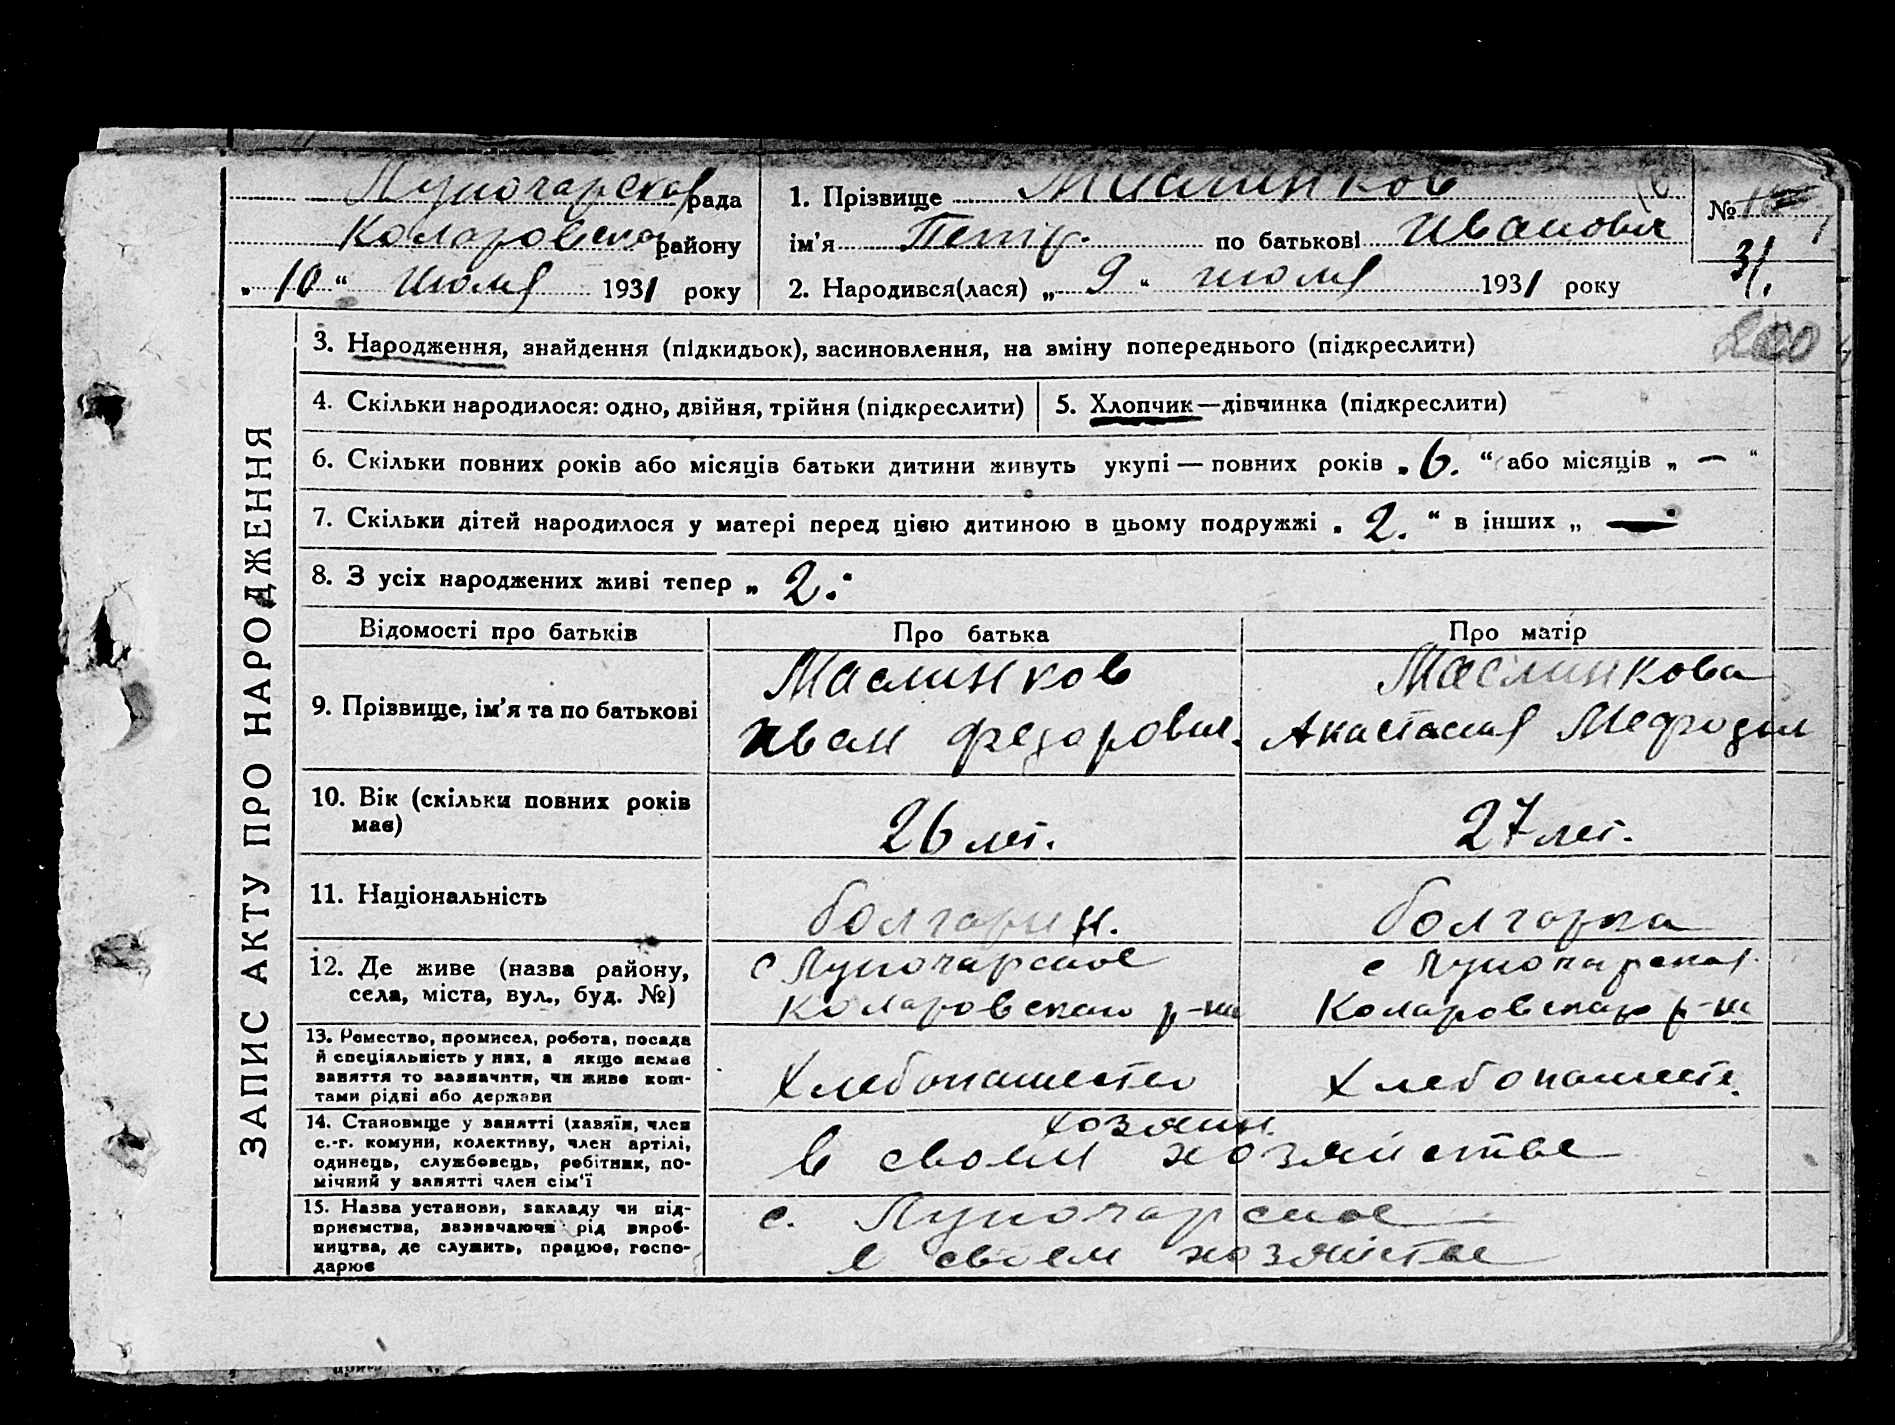 Луначарская рада
Коларовского району
„ 10 “ Июля 1931 року
1. Прізвище Маслинков
ім’я Петр. по батькові Иванович
2. Народився(лася) „ 9 “ июля 1931 року
№
31.
200
ЗАПИС АКТУ ПРО НАРОДЖЕННЯ
3. Народження, знайдення (підкидьок), засиновлення, на зміну попереднього (підкреслити)
4. Скільки народилося: одно, двійня, трійня (підкреслити)
5. Хлопчик—дівчинка (підкреслити)
6. Скільки повних років або місяців батьки дитини живуть укупі — повних років „ 6. “ або місяців „ — “
7. Скільки дітей народилося у матері перед цією дитиною в цьому подружжі „ 2. “ в інших „ —
8. З усіх народжених живі тепер „ 2.
Відомості про батьків Про батька Про матір
9. Прізвище, ім’я та по батькові
Маслинков
Иван Федорович.
Маслинкова
Анастасия Мефодил
10. Вік (скільки повних років
має)
26 лет.
27 лет.
11. Національність
болгарин.
болгарка
12. Де живе (назва району,
села, міста, вул., буд. №)
с Луночарское
Коларовскаго р-на
с Луночарская
Коларовскаго р-на
13. Ремество, промисел, робота, посада
й спеціяльність у них, а якщо немає
заняття то зазначити, чи живе кош-
тами рідні або держави
Хлебопашество
Хлебопашест.
14. Становище у занятті (хазяїн, член
с.-г. комуни, колективу, член артілі,
одинець, службовець, робітник, по-
мічний у занятті член сім’ї
хозяин.
в своем хозяйстве
15. Назва установи, закладу чи під-
приємства, зазначаючи рід вироб-
ництва, де служить, працює, госпо-
дарює
с. Луночарское
в своем хозяйстве